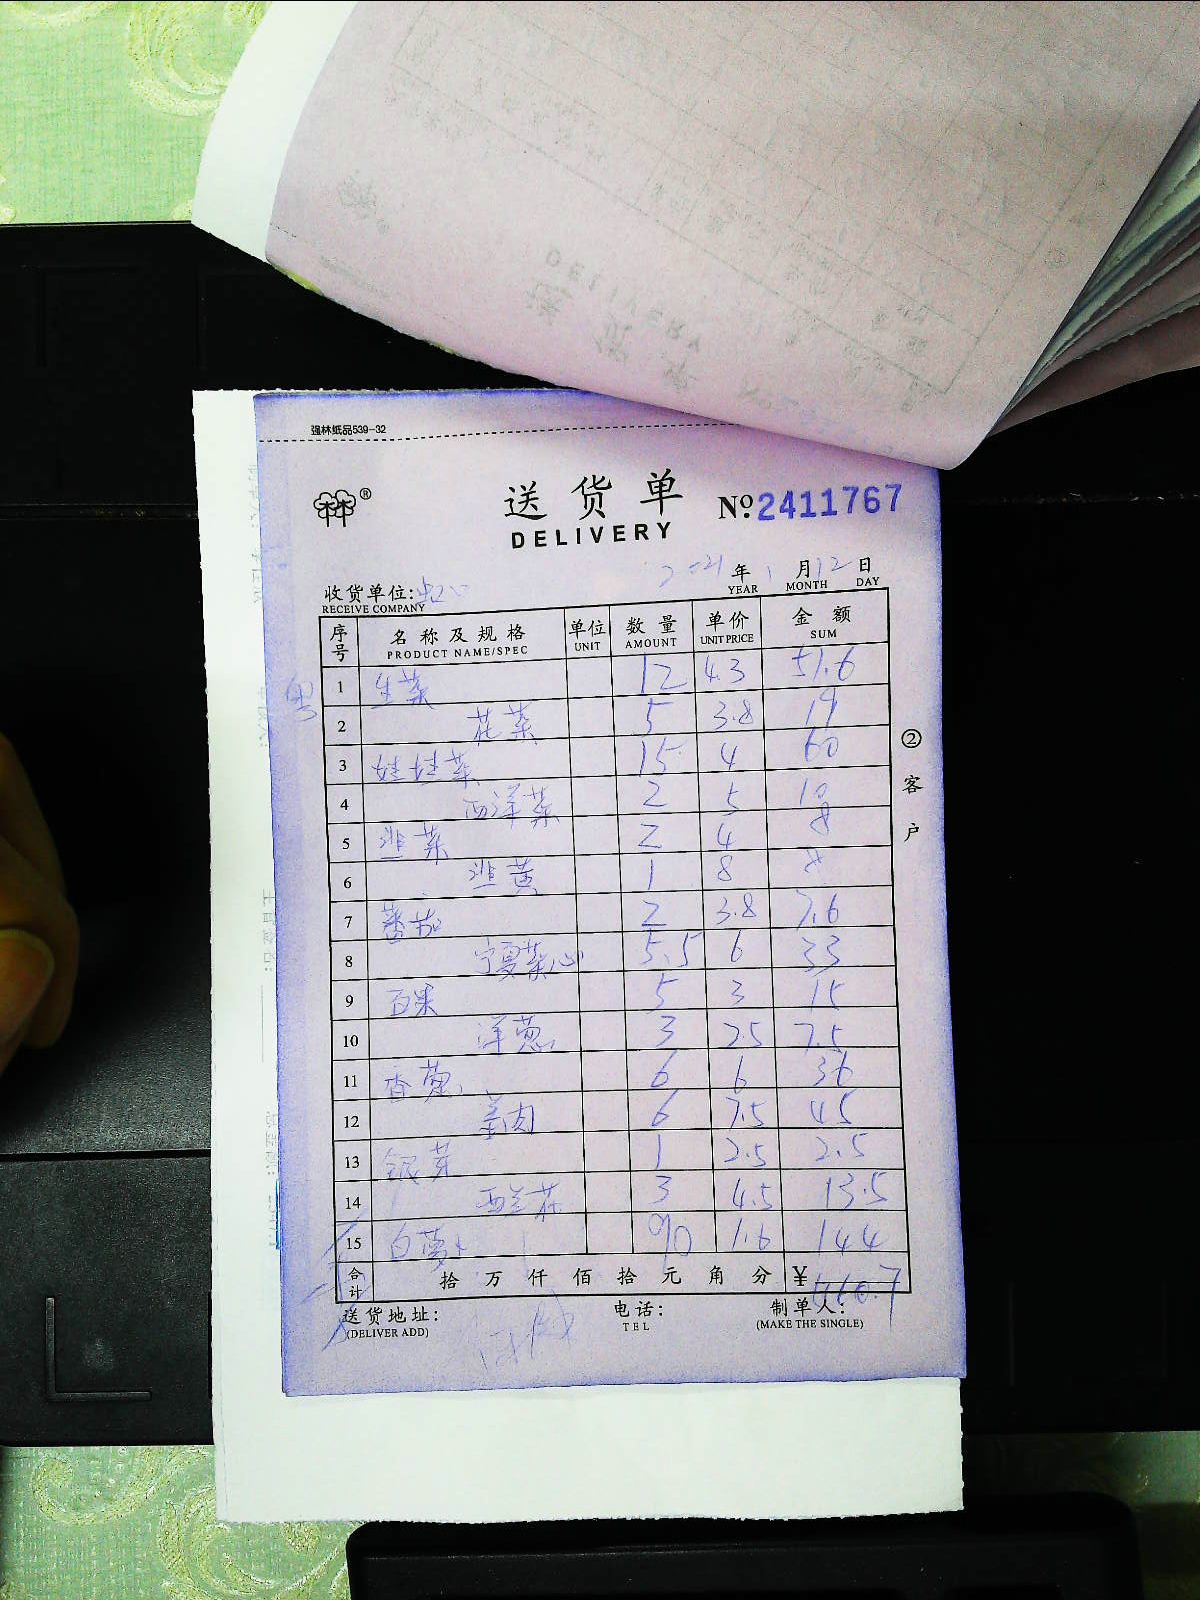 强林纸品539-32
送货单 №2411767
DELIVERY
2021年1月12日
YEAR MONTH DAY
收货单位:
RECEIVE COMPANY
序号 名称及规格 单位 数量 单价 金额
PRODUCT NAME/SPEC UNIT AMOUNT UNIT PRICE SUM
1 生菜 12 4.3 51.6
2 花菜 5 3.8 19
3 娃娃菜 15 4 60
4 西洋菜 2 5 10
5 韭菜 2 4 8
6 韭黄 1 8 8
7 番茄 2 3.8 7.6
8 宁夏菜心 5.5 6 33
9 3 15
10 洋葱 3 2.5 7.5
11 6 6 36
12 姜肉 6 7.5 45
13 银芽 1 2.5 2.5
14 西兰花 3 4.5 13.5
15 白萝卜 90 1.6 144
合计 拾万仟佰拾元角分 ¥ 460.7
送货地址: 电话: 制单人:
(DELIVER ADD) TEL (MAKE THE SINGLE)
②客户